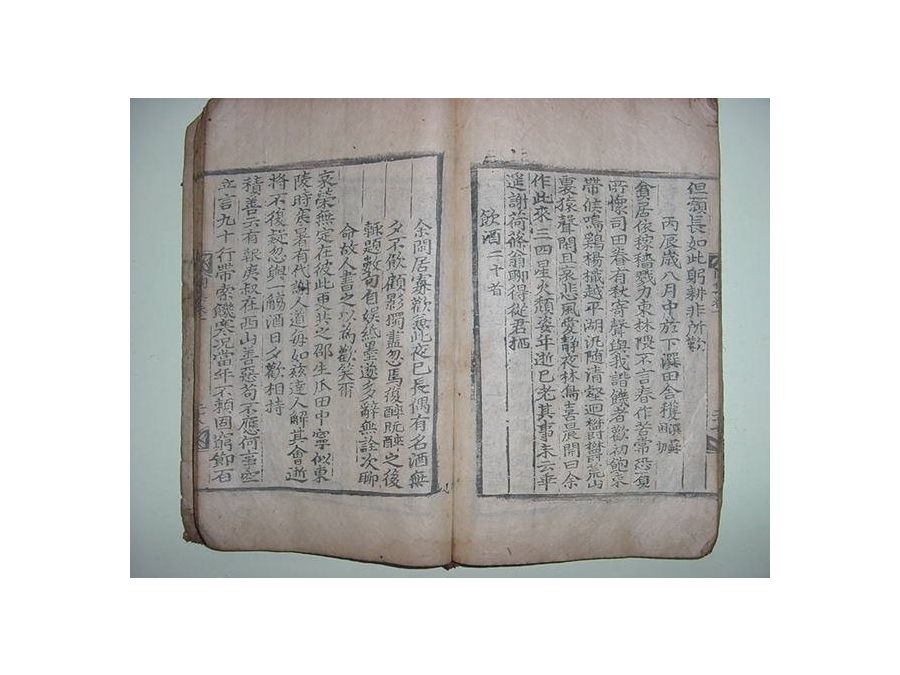 但願長如此躬耕非所歎
丙辰歲八月中於下潠田舍穫
貧居依稼穡戮力東林隈不言春作苦常恐負
所懷司田眷有秋寄聲與我諧饑者歡初飽束
帶候鳴鷄楊檝越平湖汎隨清壑迴欝欝荒山
裏猿聲閑且哀悲風愛靜夜林鳥喜晨開曰余
作此來三四星火頹姿年逝已老其事未云乖
遥謝荷蓧翁聊得從君栖
飲酒二十首
余閒居寡歡兼此夜已長偶有名酒無
夕不飲顧影獨盡忽焉復醉旣醉之後
輒題數句自娱紙墨遂多辭無詮次聊
命故人書之以為歡笑爾
衰榮無定在彼此更共之邵生瓜田中寧似東
陵時寒暑有代謝人道每如兹達人解其會逝
將不復疑忽與一觴酒日夕歡相持
積善云有報夷叔在西山善惡苟不應何事空
立言九十行帶索饑寒况當年不賴固窮節百